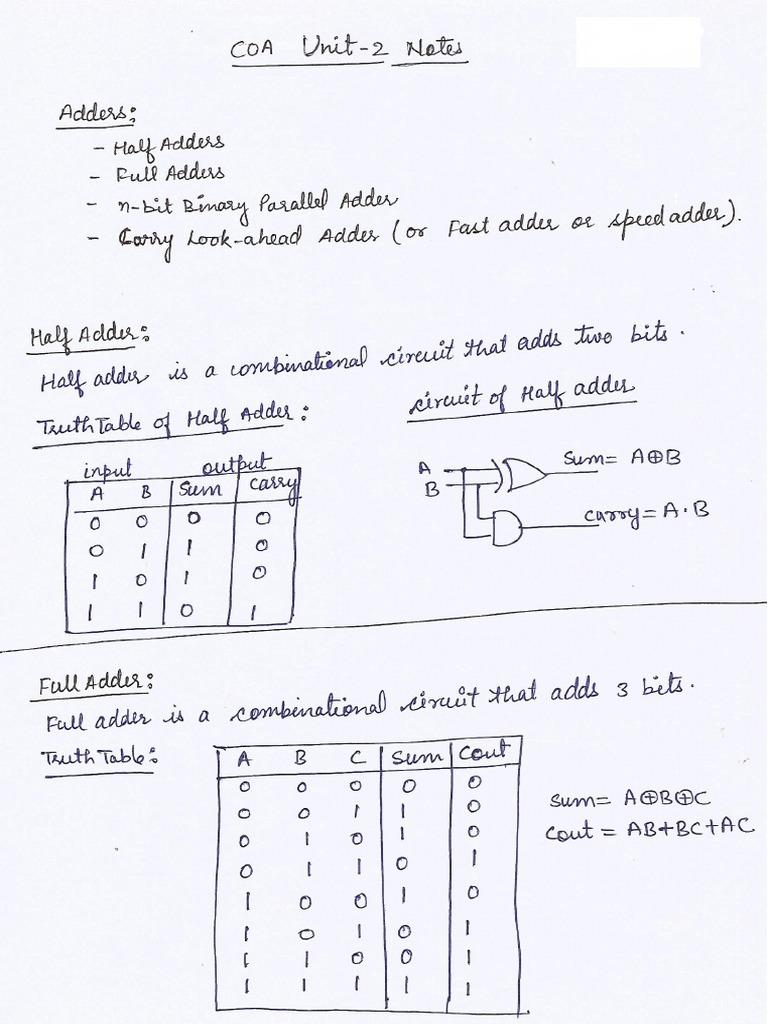 COA Unit-2 Notes
Adders:
- Half Adders
- Full Adders
- n-bit Binary Parallel Adder
- Carry Look-ahead Adder (or Fast adder or speed adder).
Half Adder:
Half adder is a combinational circuit that adds two bits.
Truth Table of Half Adder:
input output
A B Sum Carry
0 0 0 0
0 1 1 0
1 0 1 0
1 1 0 1
Circuit of Half adder
A
B
Sum= A⊕B
Carry= A·B
Full Adder:
Full adder is a combinational circuit that adds 3 bits.
Truth Table:
A B C Sum Cout
0 0 0 0 0
0 0 1 1 0
0 1 0 1 0
0 1 1 0 1
1 0 0 1 0
1 0 1 0 1
1 1 0 0 1
1 1 1 1 1
Sum= A⊕B⊕C
Cout = AB+BC+AC